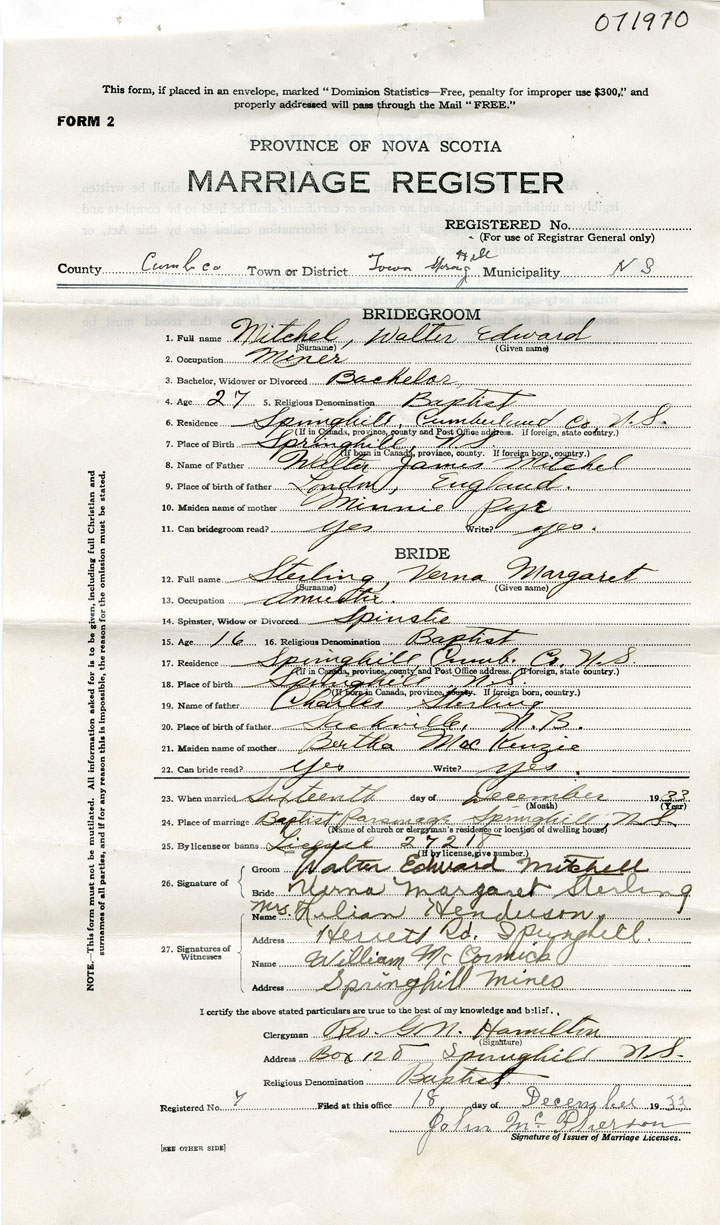 071970
This form, if placed in an envelope, marked "Dominion Statistics—Free, penalty for improper use $300," and
properly addressed will pass through the Mail "FREE."
FORM 2
PROVINCE OF NOVA SCOTIA
MARRIAGE REGISTER
REGISTERED No.
(For use of Registrar General only)
County Cumb. co Town or District Town Spring Hill Municipality N S
BRIDEGROOM
1. Full name Mitchel, Walter Edward
(Surname) (Given name)
2. Occupation Miner
3. Bachelor, Widower or Divorced Bachelor
4. Age 27 5. Religious Denomination Baptist
6. Residence Springhill, Cumberland Co., N.S.
(If in Canada, province, county and Post Office address. If foreign, state country.)
7. Place of Birth Springhill, N.S.
(If born in Canada, province, county. If foreign born, country.)
8. Name of Father Walter James Mitchel
9. Place of birth of father London, England.
10. Maiden name of mother Minnie Pye
11. Can bridegroom read? yes Write? yes.
BRIDE
12. Full name Sterling, Verna Margaret
(Surname) (Given name)
13. Occupation
14. Spinster, Widow or Divorced Spinster
15. Age 16 16. Religious Denomination Baptist
17. Residence Springhill, Cumb. Co. N.S.
(If in Canada, province, county and Post Office address. If foreign, state country.)
18. Place of birth Springhill N.S.
(If born in Canada, province, county. If foreign born, country.)
19. Name of father Charles Sterling
20. Place of birth of father Sackville, N.B.
21. Maiden name of mother Bertha MacKenzie
22. Can bride read? yes Write? yes.
23. When married Sixteenth day of December 1933
(Month) (Year)
24. Place of marriage Baptist Parsonage Springhill, N.S.
(Name of church or clergyman's residence or location of dwelling house)
25. By license or banns License
(If by license, give number.)
26. Signature of Groom Walter Edward Mitchell
Bride Verna Margaret Sterling
27. Signatures of Witnesses
Name Mrs. Lilian Henderson,
Address Rd. Springhill.
Name William McCormick
Address Springhill Mines
I certify the above stated particulars are true to the best of my knowledge and belief.
Clergyman Rev. G.N. Hamilton
(Signature)
Address Box 128 Springhill N.S.
Religious Denomination Baptist
Registered No. 7 Filed at this office 18 day of December 1933
John McPherson
Signature of Issuer of Marriage Licenses.
[SEE OTHER SIDE]
NOTE.—This form must not be mutilated. All information asked for is to be given, including full Christian and
surnames of all parties, and if for any reason this is impossible, the reason for the omission must be stated.